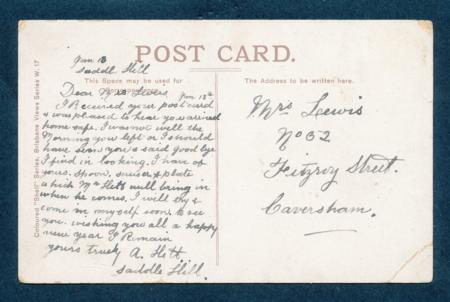 POST CARD.
This Space may be used for
The Address to be written here.
Coloured "Shell" Series. Brisbane Views Series W. 17
Jan 13
Saddle Hill
Dear Mrs Lewis
Jan 13th
I Received your post card
& was pleased to hear you arrived
home safe. I was not well the
Morning you left or I should
have seen you & said good bye
I find in looking. I have of
yours. Spoon, & plate
which Mr Hett will bring in
when he comes, I will try &
come in myself soon to see
you. wishing you all a happy
new year I Remain
yours truly A. Hett
Saddle Hill.
Mrs Lewis
No 32
Fitzroy Street.
Caversham.